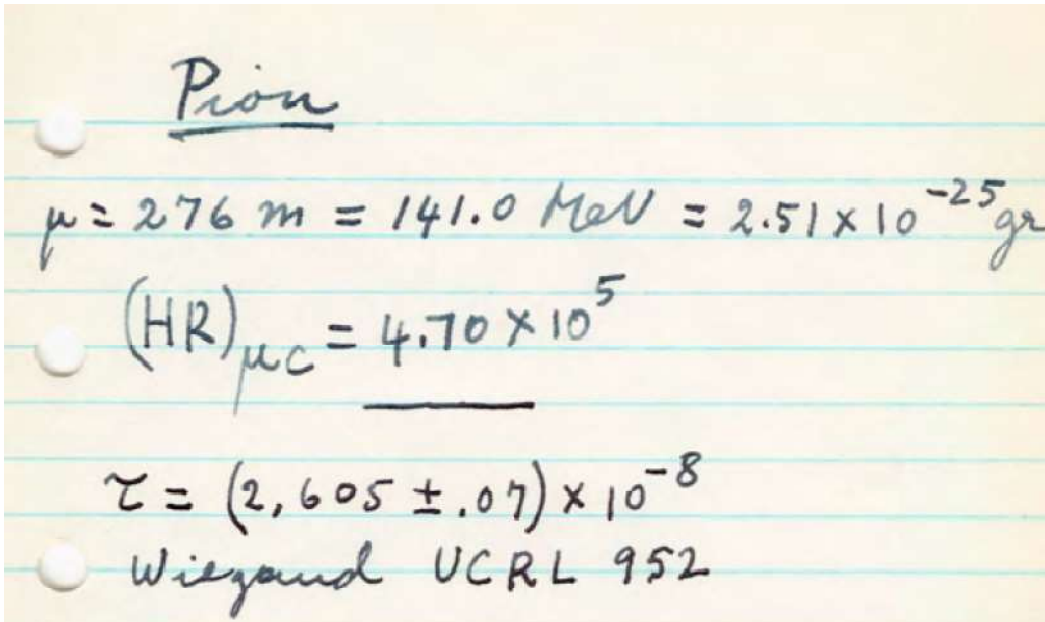 Pion
μ = 276 m = 141.0 MeV = 2.51 × 10⁻²⁵ gr
(HR)μc = 4.70 × 10⁵
τ = (2,605 ± .07) × 10⁻⁸
Wiegand UCRL 952